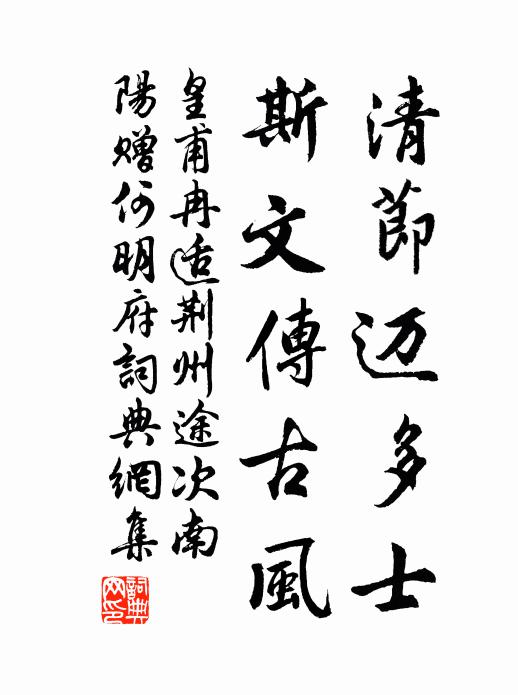 清節迈多士
斯文傳古風
皇甫冉适荆州途次南
陽赠何明府詞典網集
詞典网印